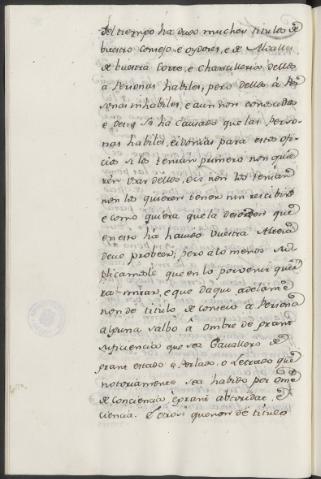 del tiempo ha dado muchos titulos de
vuestro consejo, e oydores, e de Alcalles
de vuestra Corte, e Chancilleria dellos
a Personas habiles, pero dellos à Per
sonas inhabiles, e aun non conoscidas
e desto se ha causado que las Perso
nas habiles, e idoneas para estos ofi
cios si los tenian primero non quie
ren usar dellos, e si non los tenian
non los quieren tener nin rescibir
e como quiera que la desorden que
en esto ha havido Vuestra Alteza
deve proveer, pero à lo menos su
plicamosle que en lo porvenir quie
ra mirar, e que daqui adelante
non dé titulo de consejo à Persona
alguna salbo à ombre de grant
suficiencia que sea Cavallero de
grant estado, Perlado, o Letrado que
notoriamente sea habido por ome
de conciencia, e grant abtoridat, e
ciencia. E Otrosi que non dé titulo